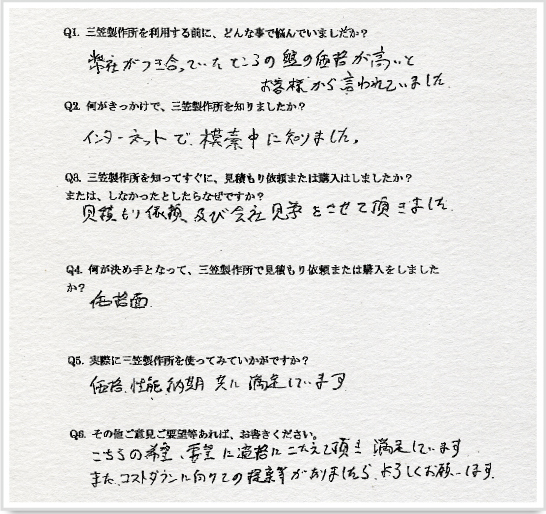 Q1. 三笠製作所を利用する前に、どんな事で悩んでいましたか？
弊社がつき合っていたところの盤の価格が高いと
お客様から言われていました。
Q2. 何がきっかけで、三笠製作所を知りましたか？
インターネットで模索中に知りました。
Q3. 三笠製作所を知ってすぐに、見積もり依頼または購入はしましたか？
または、しなかったとしたらなぜですか？
見積もり依頼及び会社見学をさせて頂きました。
Q4. 何が決め手となって、三笠製作所で見積もり依頼または購入をしました
か？
価格面
Q5. 実際に三笠製作所を使ってみていかがですか？
価格、性能、納期 共に満足しています
Q6. その他ご意見ご要望等あれば、お書きください。
こちらの希望、要望に適格にこたえて頂き 満足しています
また、コストダウンに向けての提案等がありましたら、よろしくお願いします。